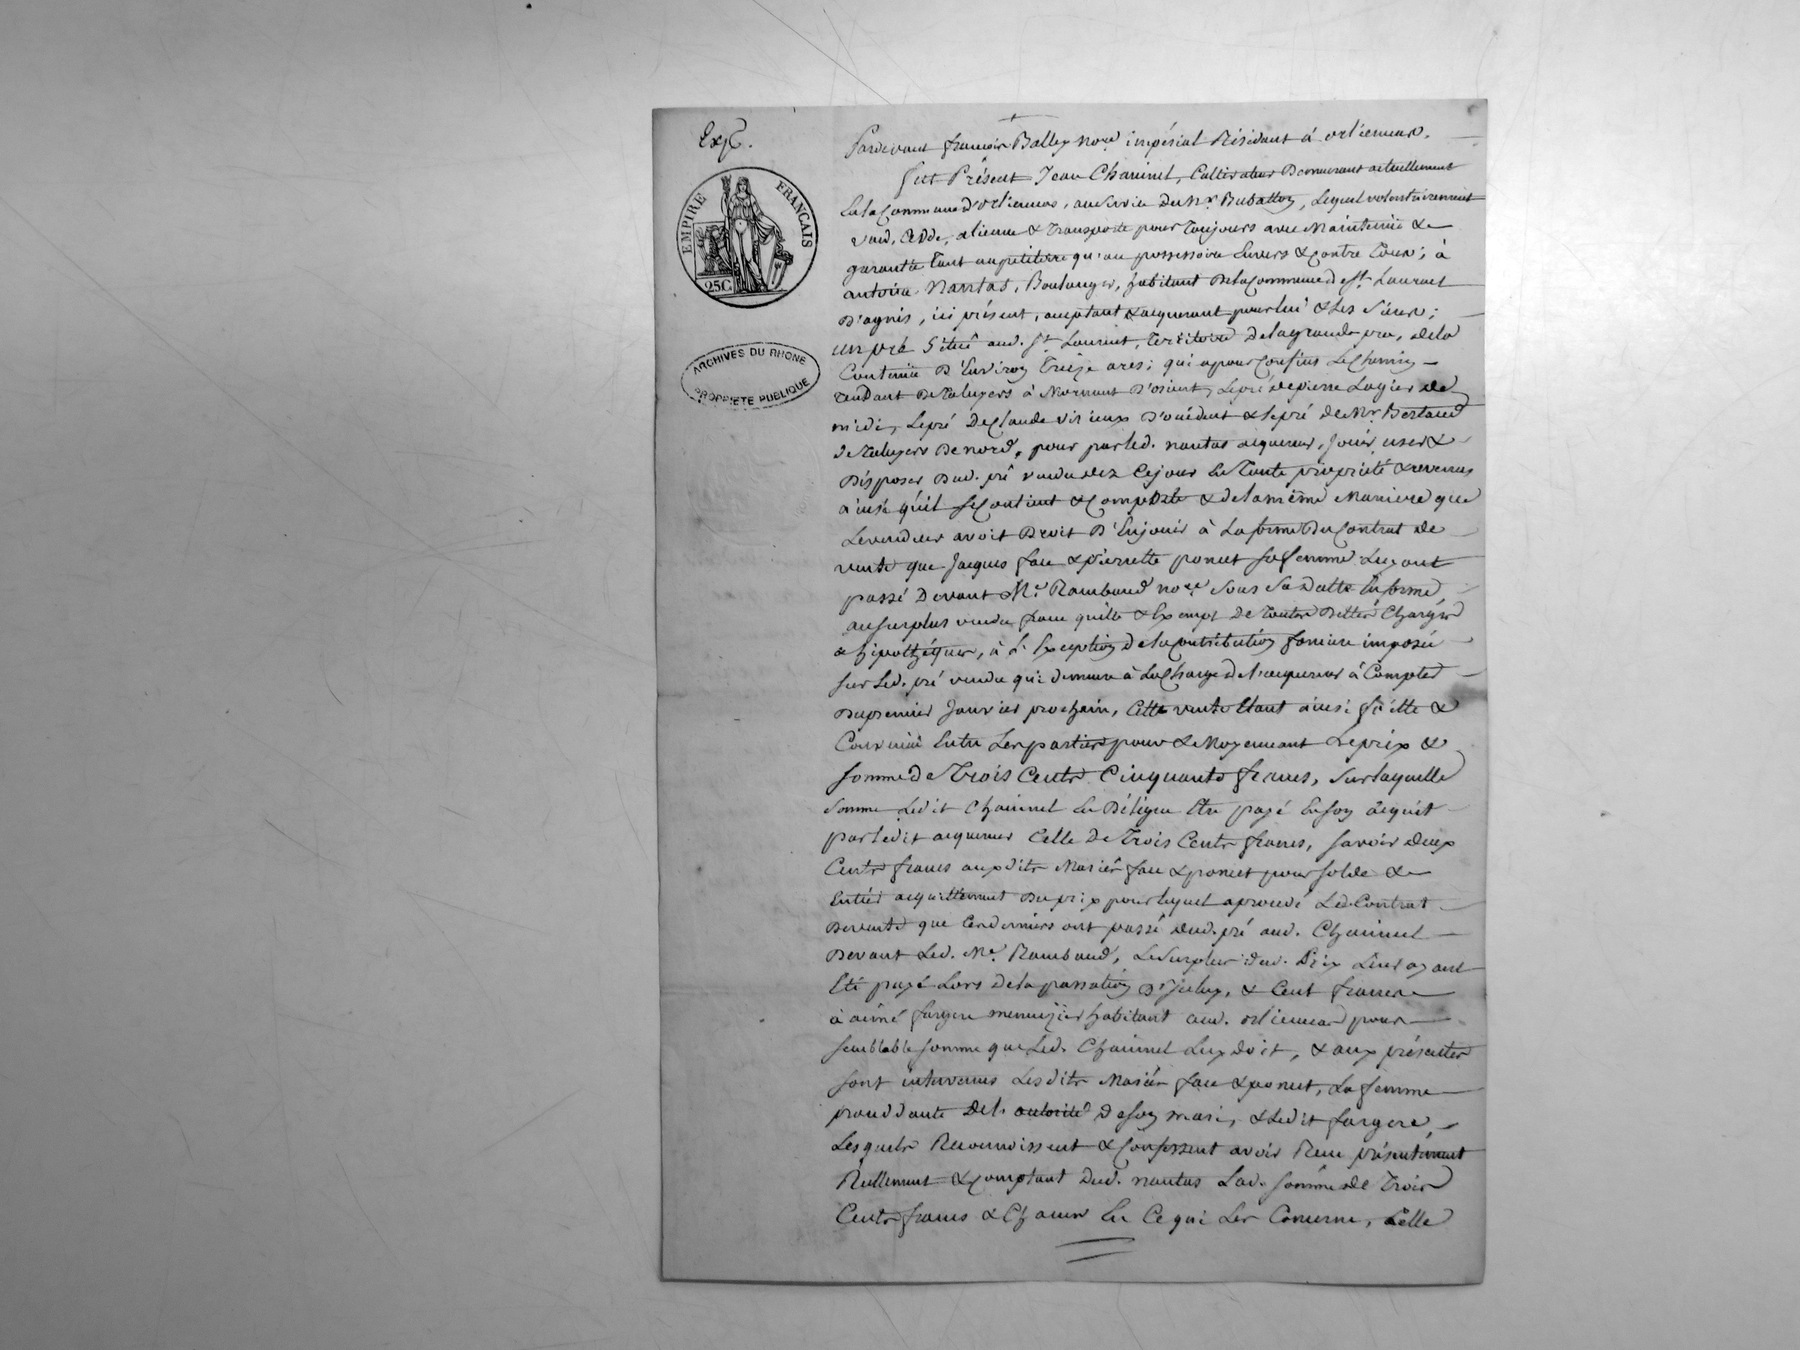 Exp.
EMPIRE FRANÇAIS
25C
ARCHIVES DU RHONE
PROPRIETE PUBLIQUE
Pardevant françois Balley no.re impérial Résidant á orlienas.
fut Présent Jean Chavinel, Cultivateur Demeurant actuellement
En la Commune d'orlienas, au Service de Mr. , Lequel volontairement
vend, Cedde, alienne & transporte pour toujours avec Maintenüe &
garantie tant au petitoire qu'au possessoire Envers & Contre tous; à
antoine Nantas, Boulanger, habitant de la Commune de St. Laurent
D'agnis, ici présent, acceptant & acquerant pour lui & Les Siens;
un pré Situé aud. St. Laurent, territoire de la grande pra, de la
Contenüe D'Environ Treize ares; qui a pour Confins Le Chemin
tendant de taluyers à Mornant D'orient, Le pré de pierre Logier de
midi, Le pré de Claude Virieux D'occident & le pré de Mr. Bertaud
de taluyers De nord, pour par led. nantas acquereur, Jouir, user &
Disposer Dud. pré vendu dez Ce jour En toute propriété & revenus
ainsi qu'il se Contient & Comporte & de la même Maniere que
Le vendeur avoit Droit D'En jouir à La forme du Contrat de
vente que Jacques fau & pierrette poncet sa femme Lui ont
passé Devant Me. Rambaud no.re Sous Sa Datte En forme,
au surplus vendu franc quitte & Exempt de toutes Dettes Charges
& hipothéques, à L'Exception de la Contribution fonciere imposée
sur Led. pré vendu qui demeure à La Charge de l'acquereur à Compter
Du premier Janvier prochain, Cette vente Etant ainsi faite &
Convenüe Entre Les parties pour & Moyennant Le prix &
somme de Trois Cents Cinquante francs, Sur laquelle
somme Ledit Chavinel En Délégue Etre payé En son acquit
par ledit acquereur Celle de Trois Cents francs, savoir deux
Cents francs auxdits Mariés fau & poncet pour solde &
Entier acquittement Du prix pour lequel a procédé Led. Contrat
De vente que Ces derniers ont passé dud. pré aud. Chavinel
Devant Led. Me. Rambaud, Le Surplus dud. Prix Leur ayant
Eté payé Lors de la passation D'Icelui, & Cent francs
à aimé fargere menuizier habitant aud. orlienas pour
semblable somme que Led. Chavinel Lui doit, & aux présentes
sont intervenus Lesdits Mariés fau & poncet, La femme
procédante de l'autorité de son mari, & Ledit fargere,
Lesquels Reconnoissent & Confessent avoir Reçu présentement
Réellement & Comptant dud. nantas Lad. somme de Trois
Cents francs & Chacun En Ce qui Les Concerne, Celle